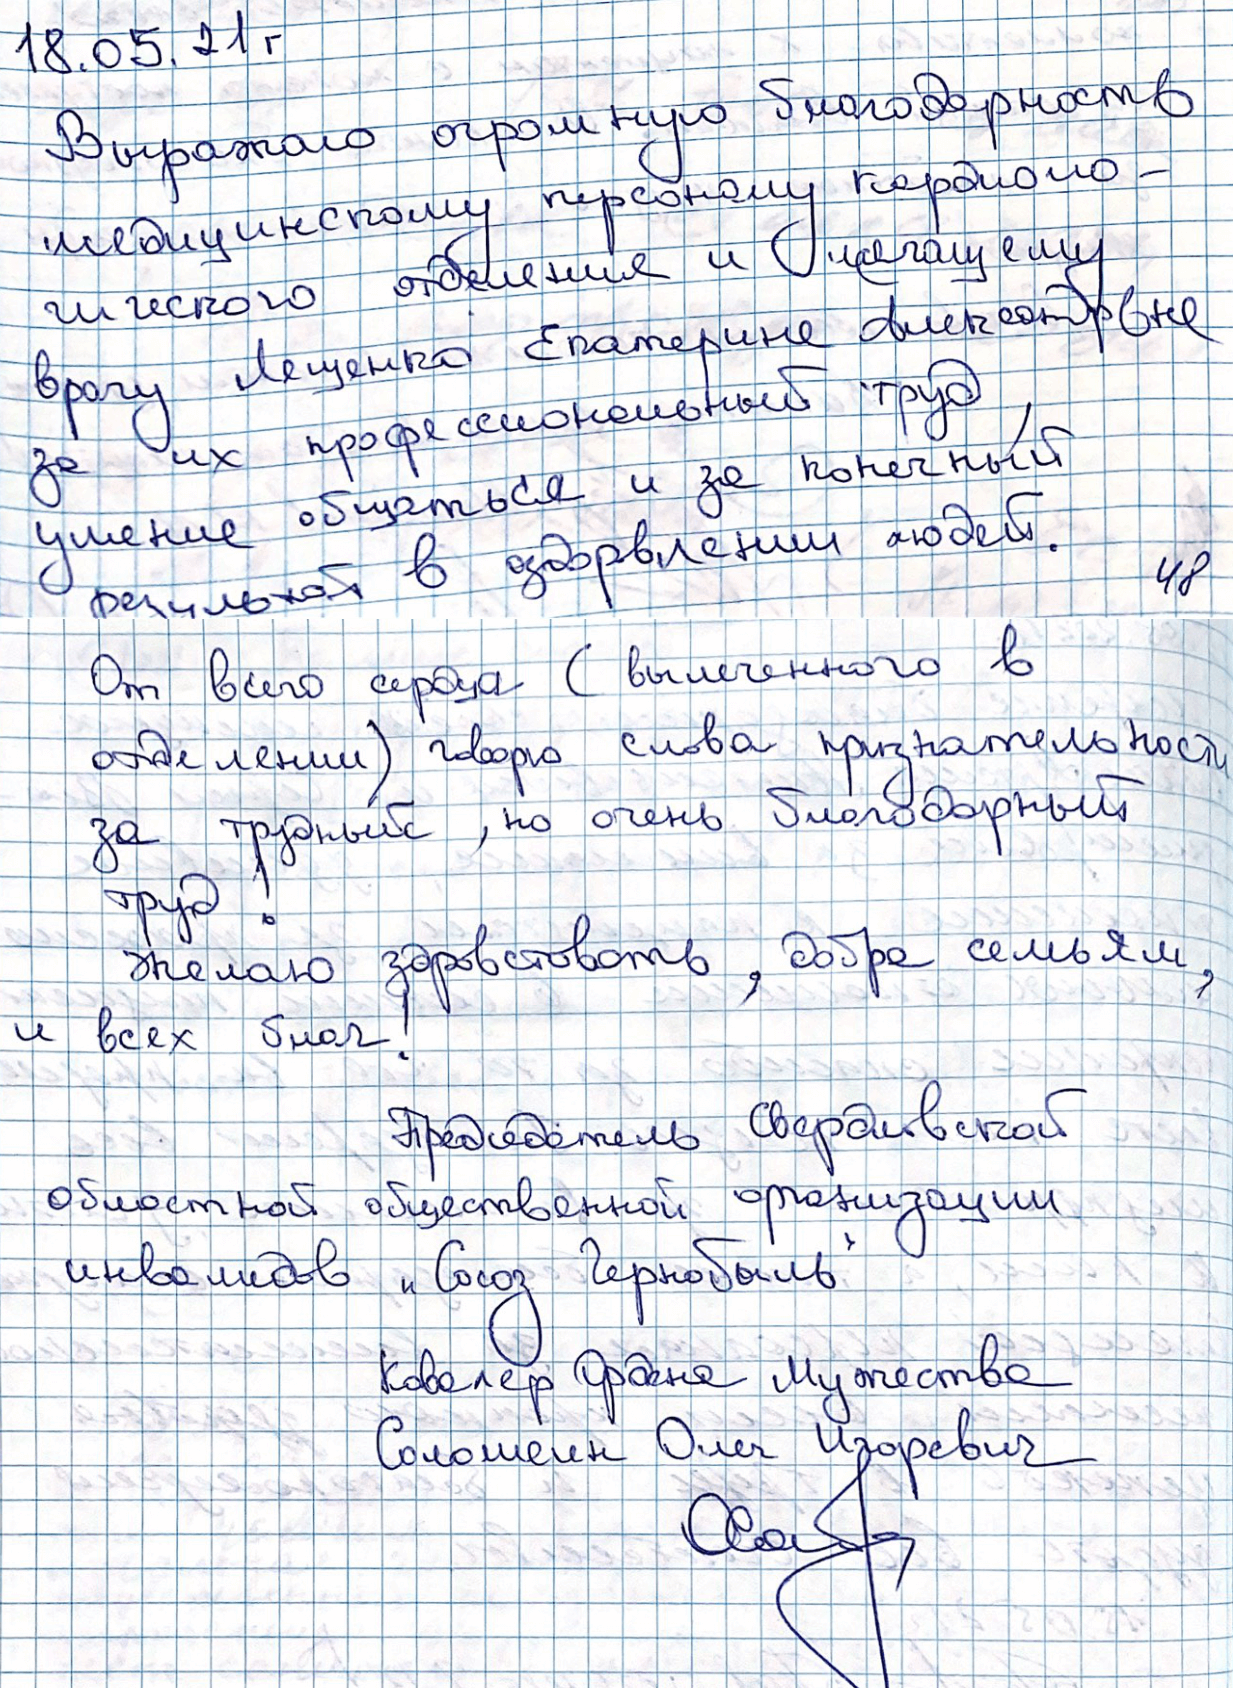 18.05.21 г
Выражаю огромную благодарность
медицинскому персоналу кардиоло-
гического отделения и лечащему
врачу Лещенко Екатерине Александрвне
за их профессиональный труд,
умение общаться и за конечный
результат в оздорвлении людей.
48
От всего сердца (вылеченного в
отделении) говорю слова признательности
за трудный, но очень благодарный
труд!
Желаю здровствовать, добра семьям,
и всех благ!
Председатель Свердловской
областной общественной организации
инвалидов "Союз Чернобыль"
Кавалер Ордена Мужества
Соломеин Олег Игоревич